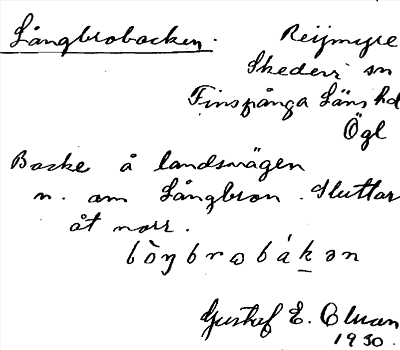 Långbrobacken.
Reijmyre
Skedevi sn
Finspånga Läns hd
Ögl
Backe å landsvägen
n. om Långbron. Sluttar
åt norr.
Gustaf E.
1930.